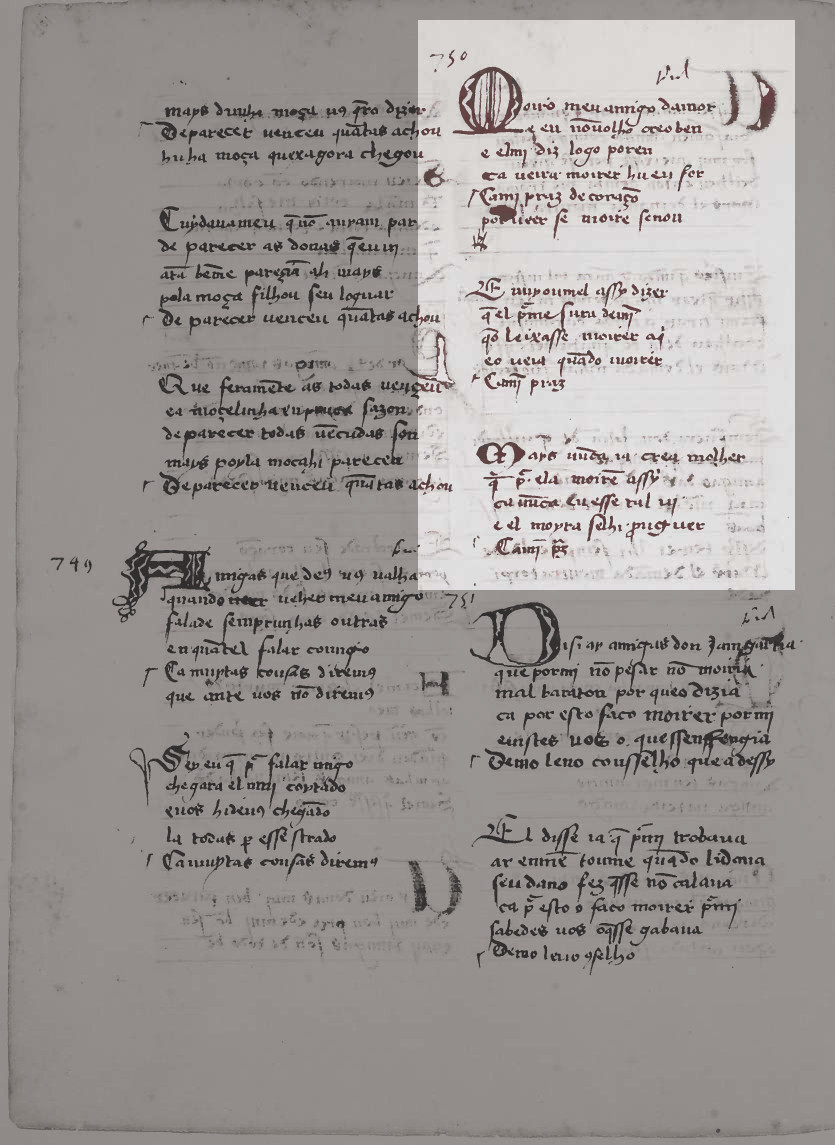 mays dunha moça uꝯ q̃ro dizer
De parecer uenceu quãtas achou
hũha moça quexagora chegou
Cuydauameu q̃ nõ auyam par
de parecer as donas q̃ eu ui
atã bẽme pareçiã ali mays
pola moça filhou seu loguar
De parecer uenceu quãtas achou
Que feramẽte as todas uençeu
ea moçelinha en pouca sazon
de parecer todas uẽcudas son
mays poyla moçahi pareceu
De parecer uenceu quãtas achou
749
Amigas que deꝯ uꝯ ualha
quando ueher meu amigo
falade sempr unhas outras
en quãtel falar comigo
Ca muytas cousas diremꝯ
que ante uos nõ diremꝯ
Sey eu q̃ p̃ falar migo
chegara el muj coytado
euos hideuꝯ chegãdo
la todas ꝑ esse strado
Ca muytas cousas diremꝯ
750
Moiro meu amigo damor
e eu nõ uolho creo ben
e elmi diz logo poren
ca ueira moirer hu eu for
Cami praz de coraçõ
por ueer se moire se non
Enuyoumel assy dizer
q̃ el p̃ me sura de mĩ
q̃o leixasse moirer aj
eo ueia quãdo moirer
Camj̃ praz
Mays nũca ia crea molher
q̃ p̃ ela moirẽ assy
ca nũca eu esse tal uj
e el moyra selhi prouguer
Camj̃ p̃z
751
Disi ay amigas don Jam garcia
que pormi nõ pesar nõ moiria
mal baratou por queo dizia
ca por esto faco moirer por mi
euistes uos o que ssenffengia
Demo leuo consselho que a dessy
El disse ia q̃ p̃ mj trobaua
ar enmẽ toume quãdo lidaua
seu dano fez q̃sse nõ calaua
ca p̃ esto o faco moirer p̃mj
sabedes uos oq̃sse gabaua
Demo leuo ꝯselho